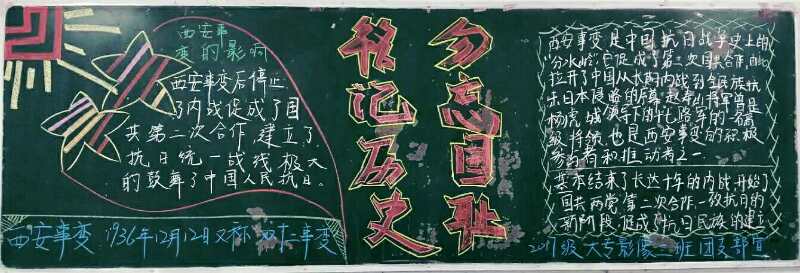 西安事
变的影响
西安事变后停止
了内战促成了国
共第二次合作,建立了
抗日统一战线极大
的鼓舞了中国人民抗日。
西安事变:1936年12月12日又称双十二事变
铭记历史
勿忘国耻
西安事变是中国抗日战争史上的
分水岭,它促成了第二次国共合作,由此
拉开了中国从长期内战到全民族抗
击日本侵略的序幕,赵寿山将军曾是
杨虎城领导下的十七路军的一名高
级将领,也是西安事变的积极
参与者和推动者之一
基本结束了长达十年的内战开始了
国共两党第二次合作,一致抗日的
新阶段,促成了抗日民族的建立
2017级大专影像二班团支部宣